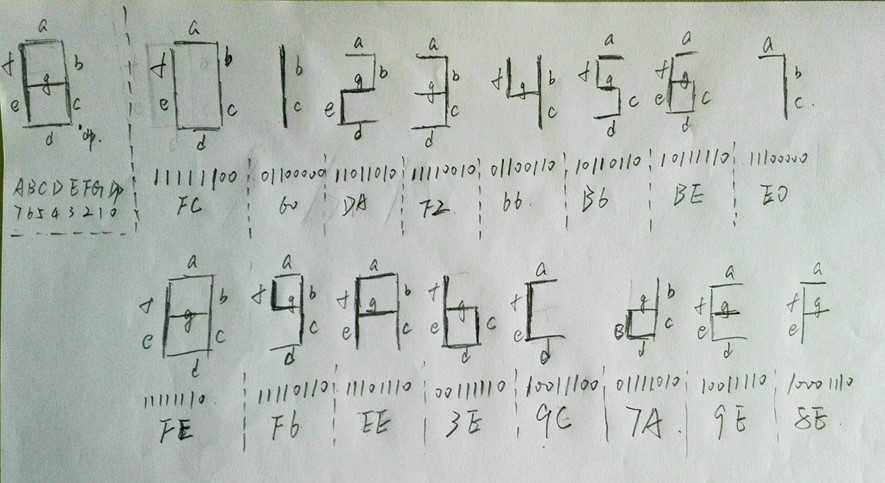 a a a a a a a
f b f b b g b f b f b f f b a b
g g g g g g
e c e c c e c c c e c c
d dp. d d d d d
ABCDEFGDp 11111100 01100000 11011010 11110010 01100110 10110110 10111110 11100000
76543210 FC 60 DA F2 66 B6 BE E0
a a a a a a
f b f b f b f f g b f f
g g g g g g
e c c e c e c e B c e e
d d d d d d
11111110 11110110 11101110 00111110 10011100 01111010 10011110 10001110
FE F6 EE 3E 9C 7A 9E 8E